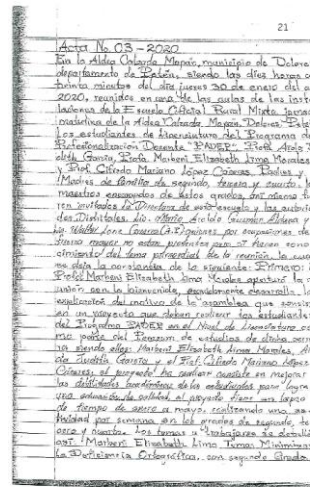 21
Acta No. 03-2020
En la Aldea Calzada Mopán, municipio de Dolores
departamento de Petén, siendo las diez horas c
treinta minutos del día jueves 30 de enero del a
2020, reunidos en una de las aulas de las insta
laciones de la Escuela Oficial Rural Mixta jornada
matutina de la Aldea Calzada Mopán, Dolores, Petén
Los estudiantes de Licenciatura del Programa de
Profesionalización Docente "PADEP"
Judith García, Profa. Marbeni Elizabeth Lima Morales
y Prof. Cifredo Mariano López Cáceres, Padres y
Madres de familia de segundo, tercero y cuarto, lo
maestros encargados de estos grados, así mismo fu
ron invitados la Directora de esta escuela y las autorida
des Distritales, Lic. Mario Guzmán Aldana y
Lic. Walter quienes por ocupaciones de
fuerza mayor no están presentes pero si tienen cono
cimiento del tema primordial de la reunión, la cual
se deja la constancia de lo siguiente: Primero: l
Profa. Marbeni Elizabeth Lima Morales aperturó la r
unión con la bienvenida, seguidamente desarrolla la
explicación del motivo de la asamblea que consist
en un proyecto que deben realizar los estudiantes
del Programa PADEP en el Nivel de Licenciatura co
mo parte del Pensum de estudios de dicho pr
ma siendo ellos: Marbeni Elizabeth Lima Morales, A
da Judith García y el Prof. Cifredo Mariano López
Cáceres, el proyecto ha realizar consiste en mejorar
las debilidades académicas de los estudiantes para logra
una educación de calidad, el proyecto tiene un lapso
de tiempo de enero a mayo, realizando una ac
tividad por semana en los grados de segundo, te
cero y cuarto. Los temas a trabajarse se detalla
así: Marbeni Elizabeth Lima Tema: Minimizando
la Deficiencia Ortográfica, con segundo Grado